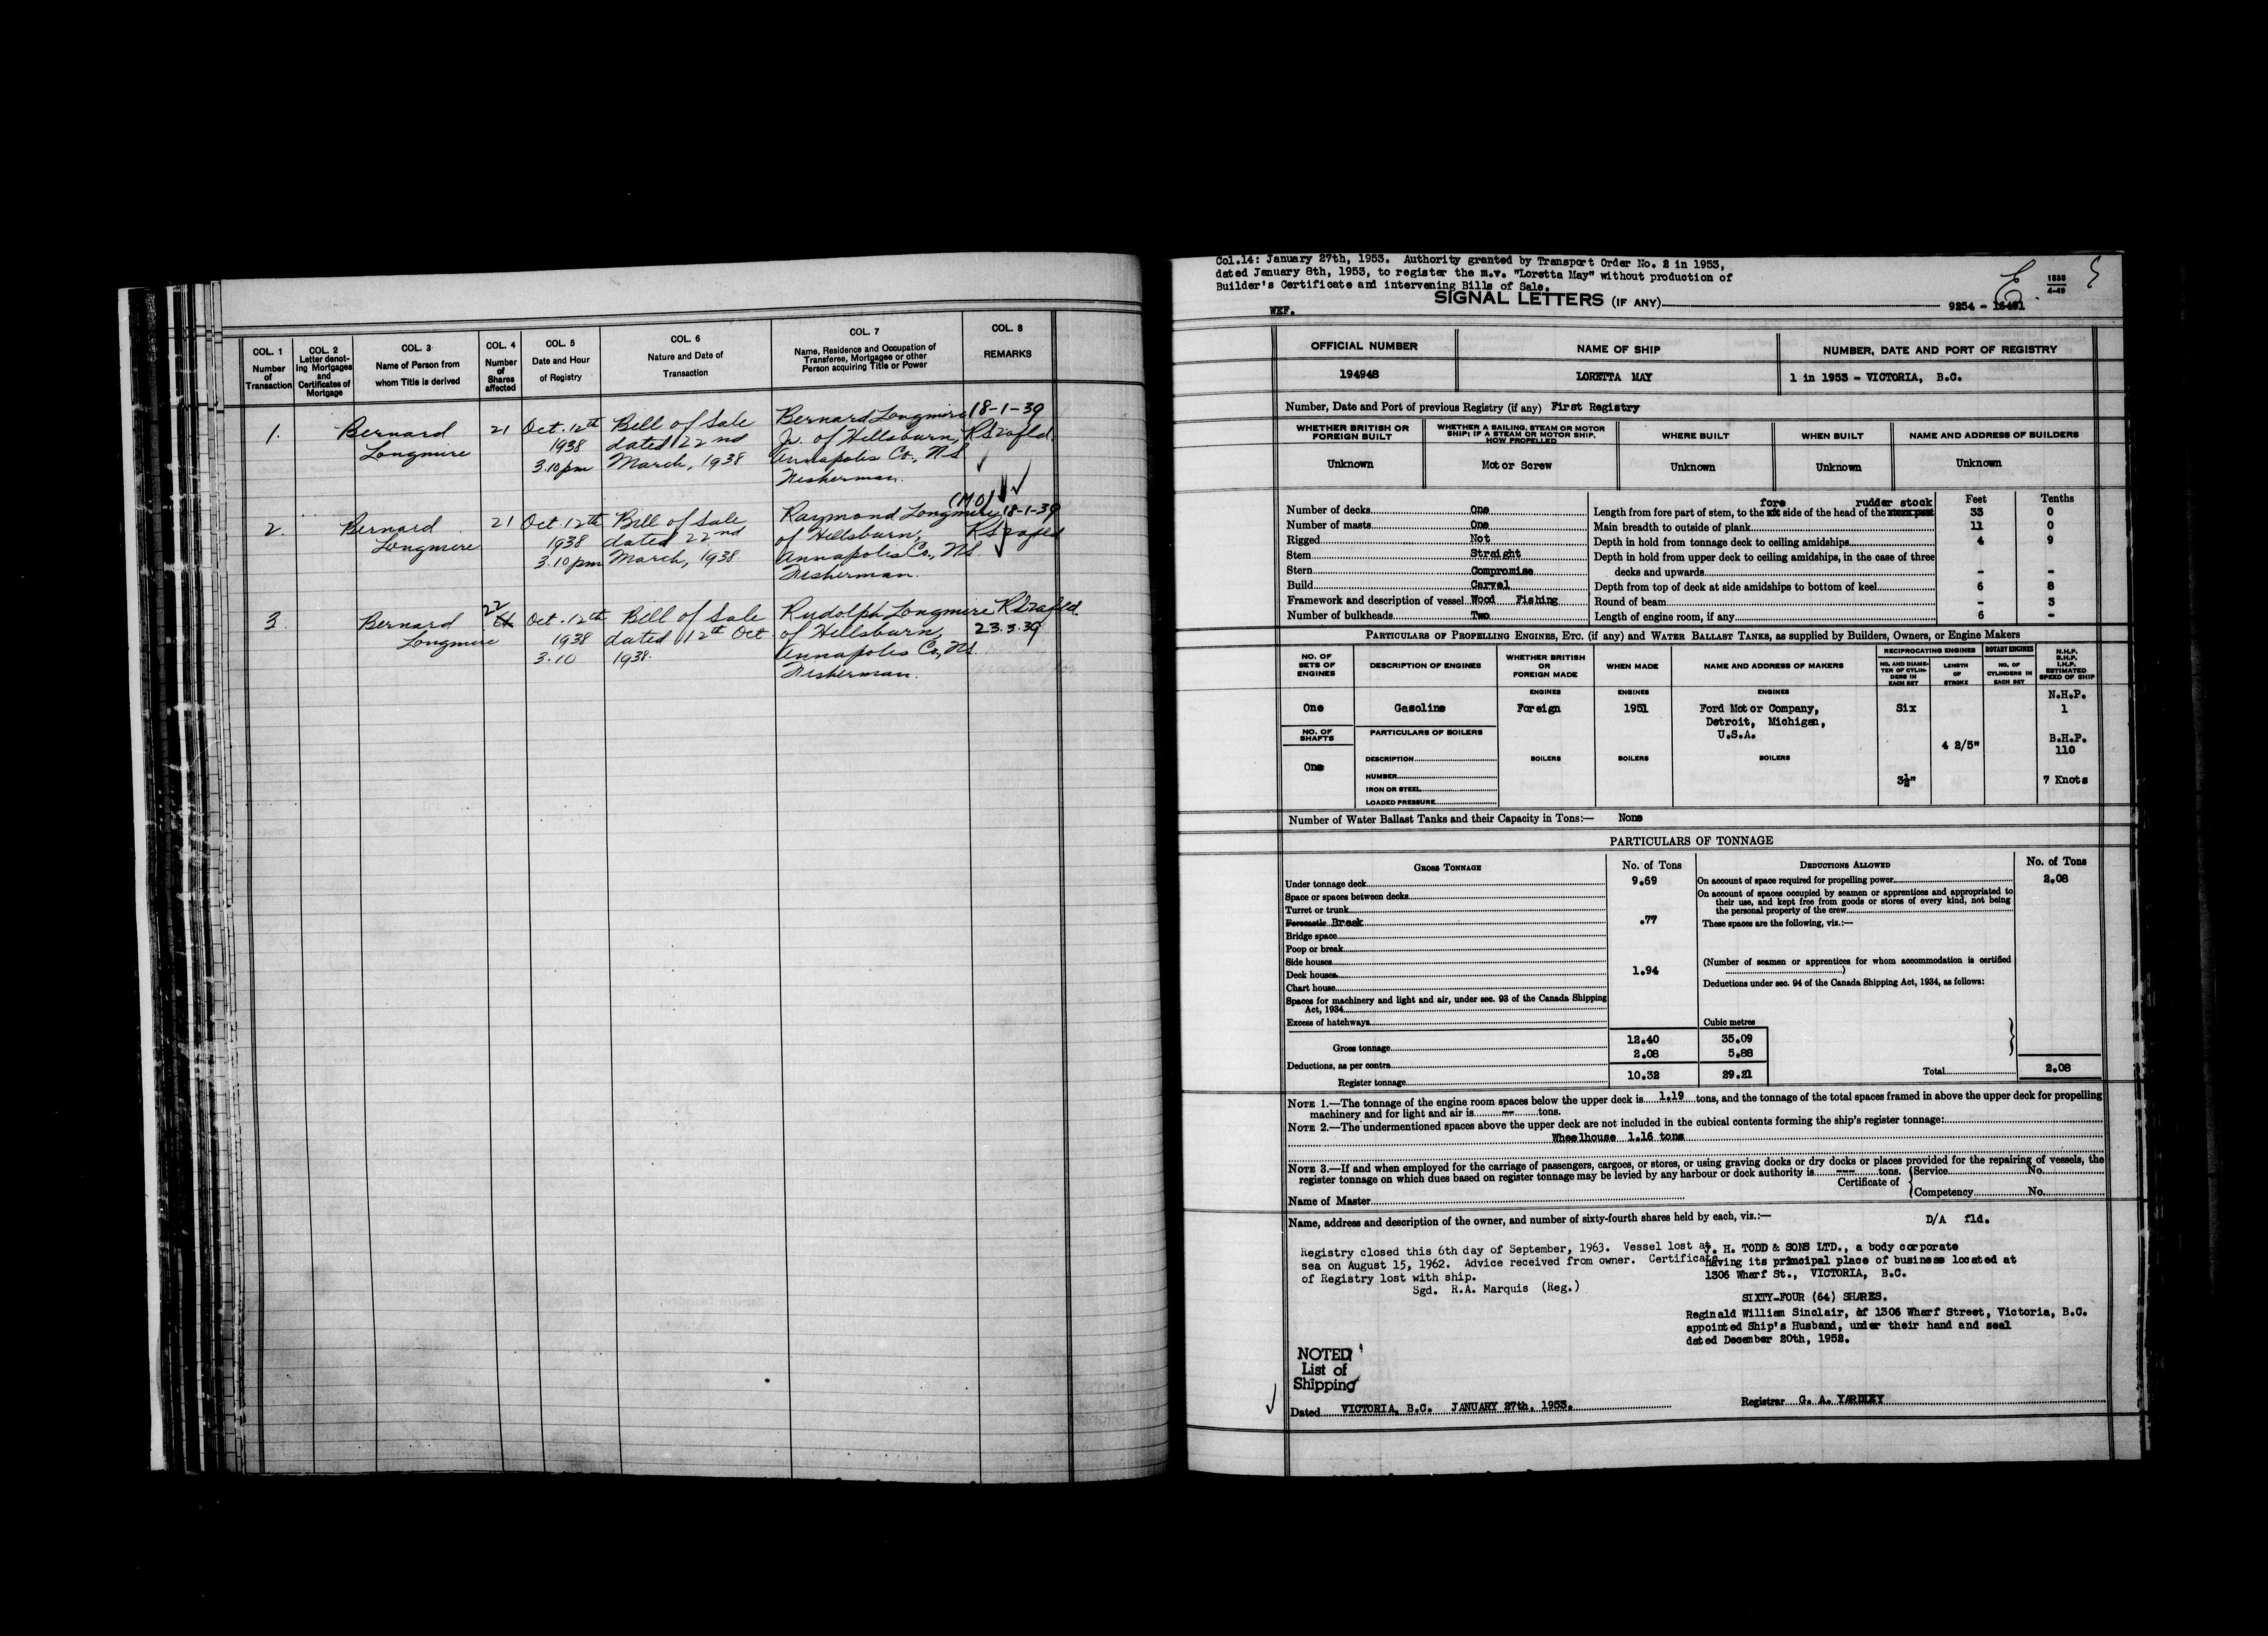 COL. 1
Number
of
Transaction
COL. 2
Letter denot-
ing Mortgages
and
Certificates of
Mortgage
COL. 3
Name of Person from
whom Title is derived
COL. 4
Number
of
Shares
affected
COL. 5
Date and Hour
of Registry
COL. 6
Nature and Date of
Transaction
COL. 7
Name, Residence and Occupation of
Transferee, Mortgagee or other
Person acquiring Title or Power
COL. 8
REMARKS
1. Bernard 21 Oct. 12th Bill of Sale Bernard Longmire 18-1-39
Longmire 1938 dated 22nd Jr. of Hillsburn,
3.10 pm March, 1938 Annapolis Co., NS
Fisherman.
2. Bernard 21 Oct. 12th Bill of Sale Raymond Longmire (M.O) 18-1-39
Longmire 1938 dated 22nd of Hillsburn,
3.10 pm March, 1938. Annapolis Co., NS
Fisherman.
3. Bernard 22 Oct. 12th Bill of Sale Rudolph Longmire
Longmire 1938 dated 12th Oct of Hillsburn, 23.3.39
3.10 1938. Annapolis Co., NS
Fisherman.
Col.14: January 27th, 1953. Authority granted by Transport Order No. 2 in 1953,
dated January 8th, 1953, to register the m.v. "Loretta May" without production of
Builder's Certificate and intervening Bills of Sale.
WEF.
SIGNAL LETTERS (IF ANY)
9254 - 16491
OFFICIAL NUMBER NAME OF SHIP NUMBER, DATE AND PORT OF REGISTRY
194948 LORETTA MAY 1 in 1953 - VICTORIA, B.C.
Number, Date and Port of previous Registry (if any) First Registry
WHETHER BRITISH OR
FOREIGN BUILT
WHETHER A SAILING, STEAM OR MOTOR
SHIP; IF A STEAM OR MOTOR SHIP,
HOW PROPELLED
WHERE BUILT WHEN BUILT NAME AND ADDRESS OF BUILDERS
Unknown Motor Screw Unknown Unknown Unknown
Number of decks One
Number of masts One
Rigged Not
Stem Straight
Stern Compromise
Build Carvel
Framework and description of vessel Wood Fishing
Number of bulkheads Two
Feet Tenths
fore rudder stock
Length from fore part of stem, to the aft side of the head of the stern post 33 0
Main breadth to outside of plank 11 0
Depth in hold from tonnage deck to ceiling amidships 4 9
Depth in hold from upper deck to ceiling amidships, in the case of three
decks and upwards - -
Depth from top of deck at side amidships to bottom of keel 6 8
Round of beam - 3
Length of engine room, if any 6 -
PARTICULARS OF PROPELLING ENGINES, ETC. (if any) and WATER BALLAST TANKS, as supplied by Builders, Owners, or Engine Makers
NO. OF
SETS OF
ENGINES
DESCRIPTION OF ENGINES
WHETHER BRITISH
OR
FOREIGN MADE
WHEN MADE
NAME AND ADDRESS OF MAKERS
RECIPROCATING ENGINES
NO. AND DIAME-
TER OF CYLIN-
DERS IN
EACH SET
LENGTH
OF
STROKE
ROTARY ENGINES
NO. OF
CYLINDERS IN
EACH SET
N.H.P.
B.H.P.
I.H.P.
ESTIMATED
SPEED OF SHIP
ENGINES ENGINES ENGINES N.H.P.
One Gasoline Foreign 1951 Ford Motor Company, Six 1
Detroit, Michigan,
U.S.A.
NO. OF
SHAFTS
PARTICULARS OF BOILERS
4 2/5" B.H.P.
110
One
DESCRIPTION BOILERS BOILERS BOILERS
NUMBER 3½" 7 Knots
IRON OR STEEL
LOADED PRESSURE
Number of Water Ballast Tanks and their Capacity in Tons:— None
PARTICULARS OF TONNAGE
GROSS TONNAGE No. of Tons DEDUCTIONS ALLOWED No. of Tons
Under tonnage deck 9.69
Space or spaces between decks
Turret or trunk
Forecastle Break .77
Bridge space
Poop or break
Side houses
Deck houses 1.94
Chart house
Spaces for machinery and light and air, under sec. 93 of the Canada Shipping
Act, 1934
Excess of hatchways
On account of space required for propelling power 2.08
On account of spaces occupied by seamen or apprentices and appropriated to
their use, and kept free from goods or stores of every kind, not being
the personal property of the crew
These spaces are the following, viz.:—
(Number of seamen or apprentices for whom accommodation is certified
)
Deductions under sec. 94 of the Canada Shipping Act, 1934, as follows:
Cubic metres
Gross tonnage 12.40 35.09
Deductions, as per contra 2.08 5.88
Register tonnage 10.32 29.21
Total 2.08
NOTE 1.—The tonnage of the engine room spaces below the upper deck is 1.19 tons, and the tonnage of the total spaces framed in above the upper deck for propelling
machinery and for light and air is -- tons.
NOTE 2.—The undermentioned spaces above the upper deck are not included in the cubical contents forming the ship's register tonnage:
Wheelhouse 1.16 tons
NOTE 3.—If and when employed for the carriage of passengers, cargoes, or stores, or using graving docks or dry docks or places provided for the repairing of vessels, the
register tonnage on which dues based on register tonnage may be levied by any harbour or dock authority is --- tons.
Name of Master
Certificate of
Service No.
Competency No.
Name, address and description of the owner, and number of sixty-fourth shares held by each, viz.:—
D/A fld.
Registry closed this 6th day of September, 1963. Vessel lost at
sea on August 15, 1962. Advice received from owner. Certificate
of Registry lost with ship.
Sgd. R.A. Marquis (Reg.)
J. H. TODD & SONS LTD., a body corporate
having its principal place of business located at
1306 Wharf St., VICTORIA, B.C.
SIXTY-FOUR (64) SHARES.
Reginald William Sinclair, of 1306 Wharf Street, Victoria, B.C.
appointed Ship's Husband, under their hand and seal
dated December 20th, 1952.
NOTED
List of
Shipping
Dated VICTORIA, B.C. JANUARY 27th, 1953.
Registrar G. A. YARDLEY